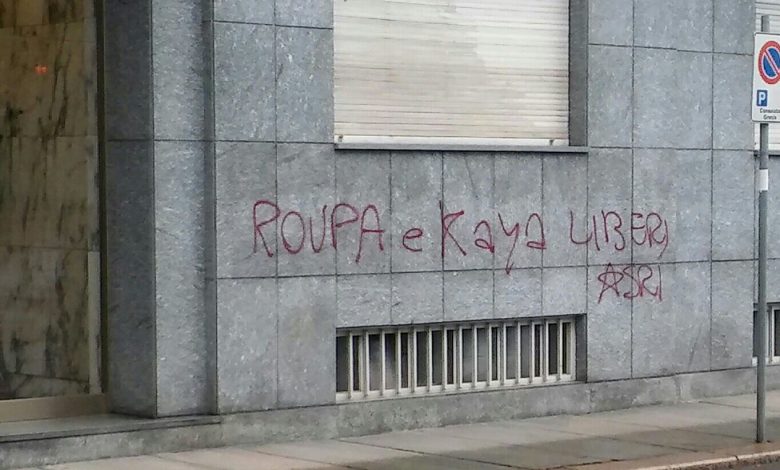 ROUPA e Kaya LIBERI
ASRI
P
Consolato
Grecia